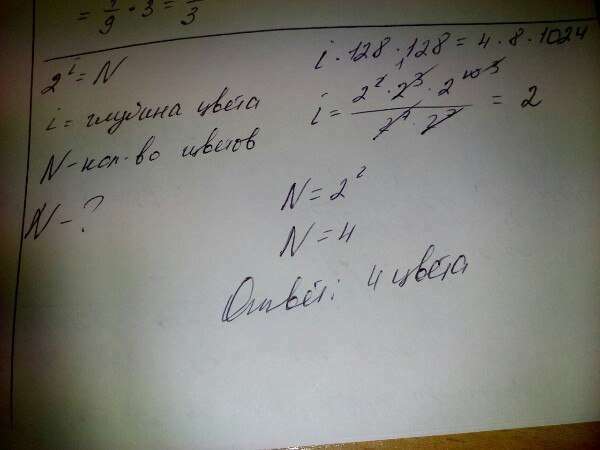 = 1/9 · 3 = 1/3
2^i = N
i = глубина цвета
N - кол-во цветов
N - ?
i · 128 · 128 = 4 · 8 · 1024
i = = 2
N = 2^2
N = 4
Ответ: 4 цвета